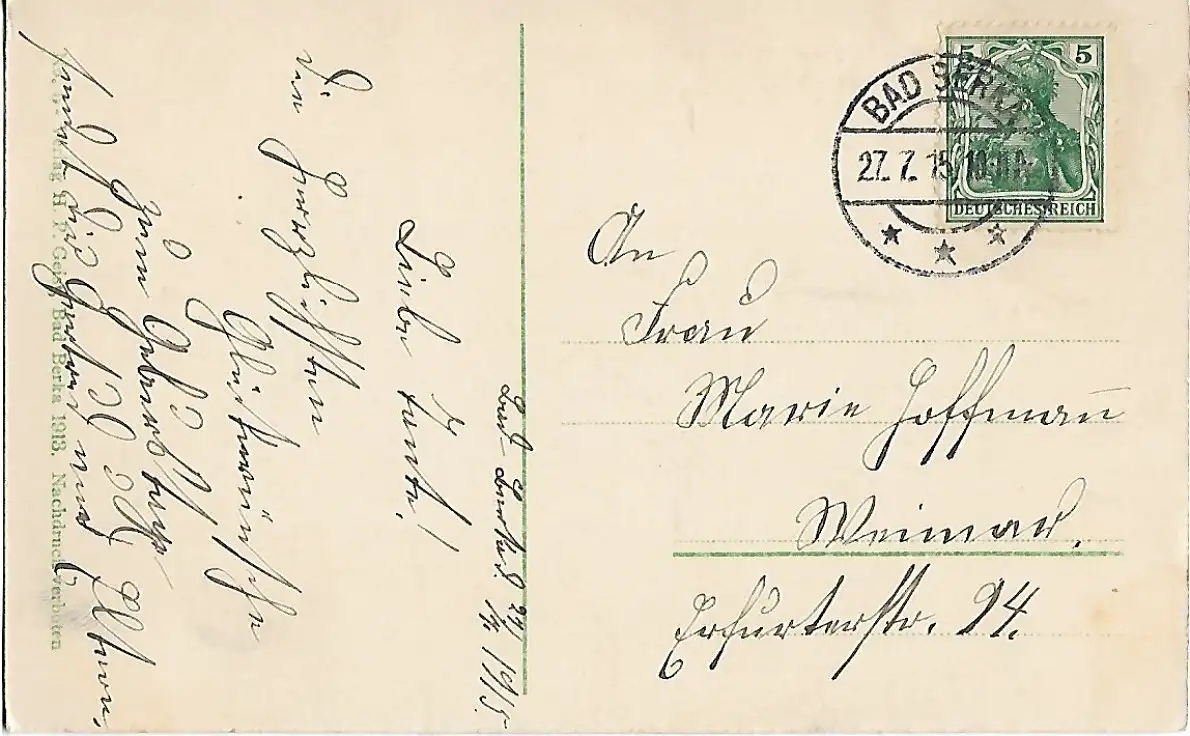 5 5
DEUTSCHES REICH
BAD BERKA
27. 7. 15 10-11
An
Frau
Marie Hoffmann
Weimar.
Erfurterstr. 24.
Bad Berka d. 27/7 1915.
Liebe Tante!
Die herzlichsten
Glückwünsche
zum Geburtstage
sendet Dir und Eltern.
Verlag H. F. Geist, Bad Berka 1913. Nachdruck verboten